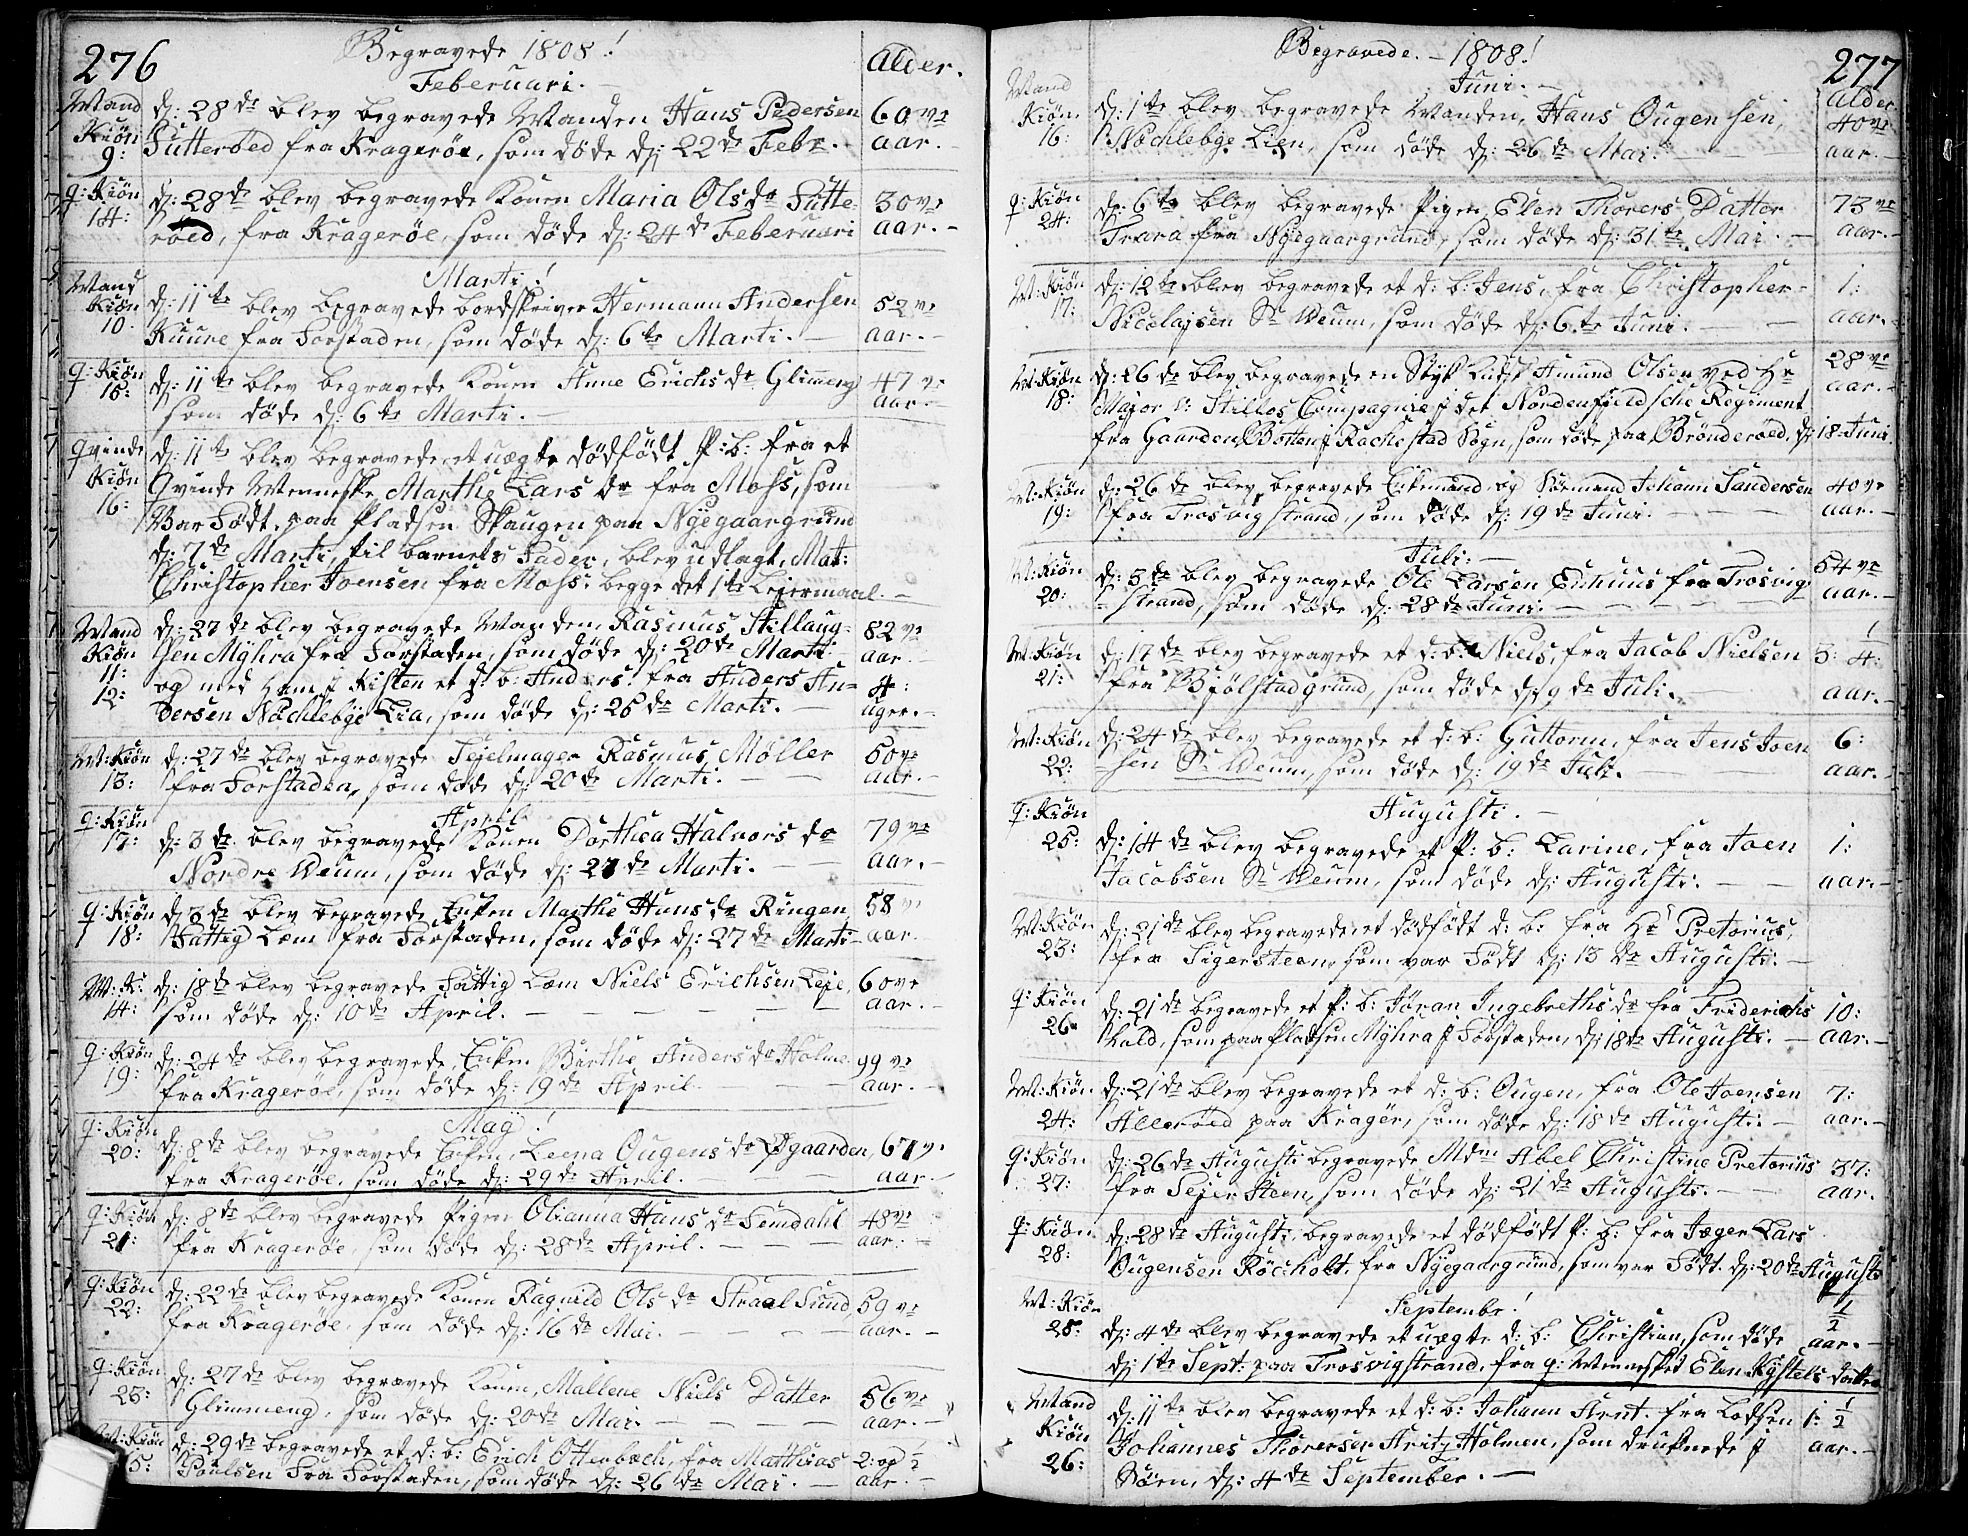 276
Begravede 1808!
Alder.
Februari. —
Mand Kiøn 9:
d: 28de blev begravede Manden Hans Pedersen 60ve
Sutterøed fra Kragerøe, som døde d: 22de Febr. aar.
q: Kiøn 14:
d: 28de blev begravede Konen Maria Olsdr Sutte- 30ve
røed, fra Kragerøe, som døde d: 24de Februari aar. —
Marti!
Mand Kiøn 10.
d: 11te blev begravede bordskriver Hermann Andersen 52ve
Kuure fra Forstaden, som døde d: 6te Marti. — aar. —
q: Kiøn 15:
d: 11te blev begravede Konen Anne Erichsdr Glimmeng 47ve
som døde d: 6te Marti. — aar. —
qvinde Kiøn 16:
d: 11te blev begravede et uægte dødfødt P: b: fra et
Qvinde Menneske Marthe Larsdr fra Moss, som
Var Født paa Pladsen Skaugen paa Nyegaargrund
d: 7de Marti, til barnets Fader, blev udlagt, Mat:
Christopher Joensen fra Moss: begge det 1te Lejermaal. —
Mand Kiøn 11: 12:
d: 27de blev begravede Manden Rasmus Stillaug- 82ve
sen Myhra fra Forstaden, som døde d: 20de Marti aar
og med ham i Kisten et d: b: Anders fra Anders An- 4:
dersen Nøchlebye Lia, som døde d: 26de Marti. — uger. —
M: Kiøn 13:
d: 27de blev begravede Tejelmager Rasmus Møller 50ve
fra Forstaden, som døde d: 20de Marti. — aar. —
April
q: Kiøn 17:
d: 3de blev begravede Konen Dorthea Halvorsdr 79ve
Nordre Veum, som døde d: 27de Marti. — aar. —
q: Kiøn 18:
d: 3de blev begravede Enken Marthe Hansdr Ringen 58ve
Fattig Lem fra Forstaden, som døde d: 27de Marti aar.
M: K: 14:
d: 18de blev begravede Fattig Lem Niels Erichsen Leje, 60ve
som døde d: 10de April. — — — aar. —
q: Kiøn 19:
d: 24de blev begravede Enken Birthe Andersdr Holme 99ve
fra Kragerøe, som døde d: 19de April. — aar. —
May!
q: Kiøn 20:
d: 8de blev begravede Enken, Leena Ougensdr Øgaarden, 67ve
fra Kragerøe, som døde d: 29de April. — — aar —
q: Kiøn 21:
d: 8de blev begravede Pigen Olianna Hansdr Semdahl 48ve
fra Kragerøe, som døde d: 28de April. — — — aar. —
q: Kiøn 22:
d: 22de blev begravede Konen Ragnild Olsdr Straal Sund, 59ve
fra Kragerøe, som døde d: 16de Mai. — — — aar. —
q: Kiøn 23:
d: 27de blev begravede Konen, Mallene Niels Datter 56ve
Glimmeng, som døde d: 20de Mai. — — — aar. —
M: Kiøn 15:
d: 29de begravede et d: b: Erich Ottenbech, fra Matthias 2: og ½
Poulsen Fra Forstaden, som døde d: 26de Mai. — aar. —
277
Begravede. — 1808!
Juni. —
Alder
Mand Kiøn 16:
d: 1te blev begravede Manden, Hans Ougensen, 40ve
Nøchlebye Lien, som døde d: 26de Mai. — — aar. —
q: Kiøn 24:
d: 6te blev begravede Pigen, Elen Thorers Datter 73ve
Trara fra Nyegaargrund, som døde d: 31te Mai. — aar. —
M: Kiøn 17:
d: 12te blev begravede et d: b: Jens, fra Christopher- 1:
Nicolajsen Sr Veum, som døde d: 6te Juni. — — aar. —
M: Kiøn 18:
d: 26de blev begravede en Syyk Lands Amund Olsen ved Hr 28ve
Major v: Stillos Compagnie i det Nordenfieldsche Regiment aar. —
fra Gaarden Botten i Rachestad Sogn, som døde paa Brønderøed, d: 18 Juni.
M: Kiøn 19:
d: 26de blev begravede Enkemand og Sømand Johann Sandersen 40ve
fra Trosvig strand, som døde d: 19de Juni. — — aar. —
Juli: —
M: Kiøn 20:
d: 3de blev begravede Ole Larsen Enhuus fra Trosvig 54ve
strand, som døde d: 28de Juni. — — — aar. —
M: Kiøn 21:
d: 17de blev begravede et d: b: Niels, fra Jacob Nielsen 3: ¼:
fra Bjølstadgrund, som døde d: 9de Juli. — aar. —
M: Kiøn 22:
d: 24de blev begravede et d: b: Guttorm, fra Jens Joen 6:
sen Sr Veum, som døde d: 19de Juli. — — aar. —
Augusti. —
q: Kiøn 25:
d: 14de blev begravede et P: b: Larine, fra Joen 1:
Jacobsen Sr Veum, som døde d: Augusti. — — aar. —
M: Kiøn 23:
d: 21de blev begravede et dødfødt d: b: fra Hr Pretorius,
fra Sigersteen, som var Født d: 13de Augusti. —
q: Kiøn 26
d: 21de begravede et P: b: Jøran Ingebrethsdr fra Friderichs 10:
hald, som paa Pladsen Myhra i Forstaden, d: 18de Augusti. — aar. —
M: Kiøn 24:
d: 21de blev begravede et d: b: Ougen, fra Ole Joensen 7:
Allerøed paa Krager, som døde d: 18de Augusti. — aar. —
q: Kiøn 27:
d: 26de Augusti begravede Mdm Abel Christine Pretorius 37:
fra Sejersteen, som døde d: 21de Augusti. — — aar.
q: Kiøn 28:
d: 28de Augusti. begravede et dødfødt P: b: fra Jæger Lars
Ougensen Røcholt, fra Nyegaargrund, som var Født d: 20de Augusti
Septembr!
M: Kiøn 25:
d: 4de blev begravede et uægte d: b: Christian, som døde ½ aar. —
d: 1te Sept: paa Trosvigstrand, fra q: Mennesket Elen Kystels datter
Mand Kiøn 26:
d: 11te blev begravede et d: b: Johann Arnt. fra Lodsen 1: ½
Johannes Thoresen Aritz Holmen, som druknede i aar. —
Søen, d: 4de September. —